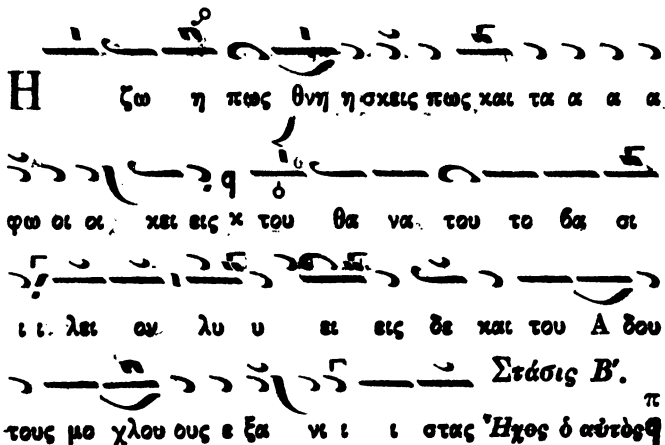 Η ζω η πως θνη η σκεις πως και τα α α α
φω οι οι κει εις κ του θα να του το βα σι
ι ι λει ον λυ υ ει εις δε και του Α δου
Στάσις Β′.
τους μο χλου ους ε ξα νι ι ι στας Ἦχος ὁ αὐτὸς